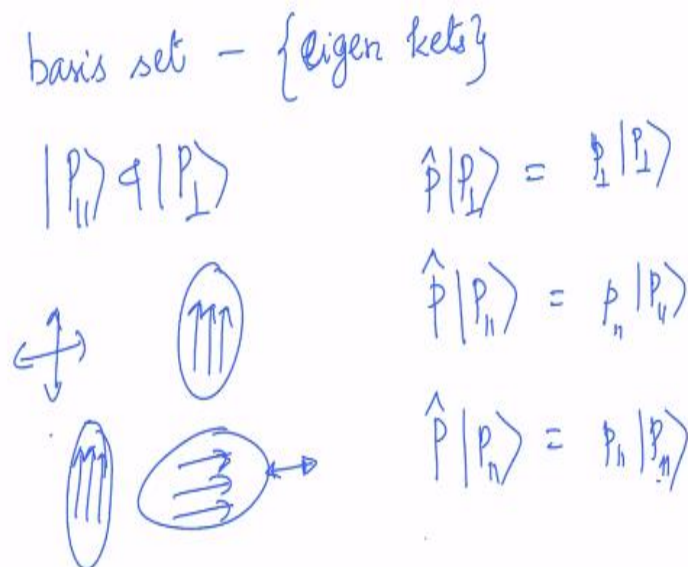 basis set - {eigen kets}
|P_∥⟩ & |P_⊥⟩
p̂|P_⊥⟩ = p_⊥|P_⊥⟩
p̂|P_∥⟩ = p_∥|P_∥⟩
p̂|P_n⟩ = p_n|P_n⟩